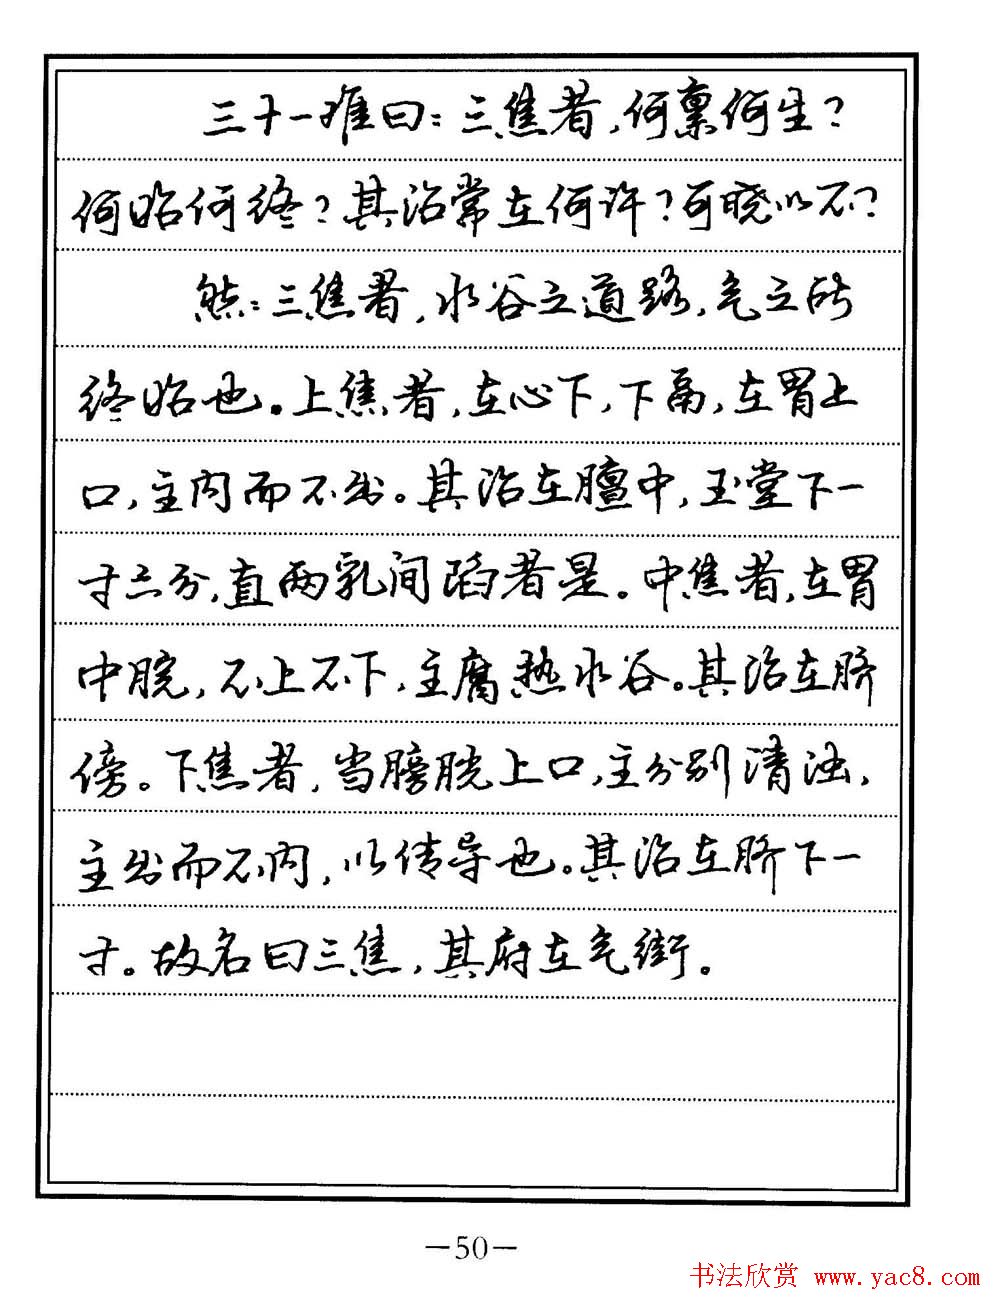 三十一难曰：三焦者，何禀何生？
何始何终？其治常在何许？可晓以不？
然：三焦者，水谷之道路，气之所
终始也。上焦者，在心下，下鬲，在胃上
口，主内而不出。其治在膻中，玉堂下一
寸六分，直两乳间陷者是。中焦者，在胃
中脘，不上不下，主腐熟水谷。其治在脐
傍。下焦者，当膀胱上口，主分别清浊，
主出而不内，以传导也。其治在脐下一
寸。故名曰三焦，其府在气街。
—50—
书法欣赏 www.yac8.com